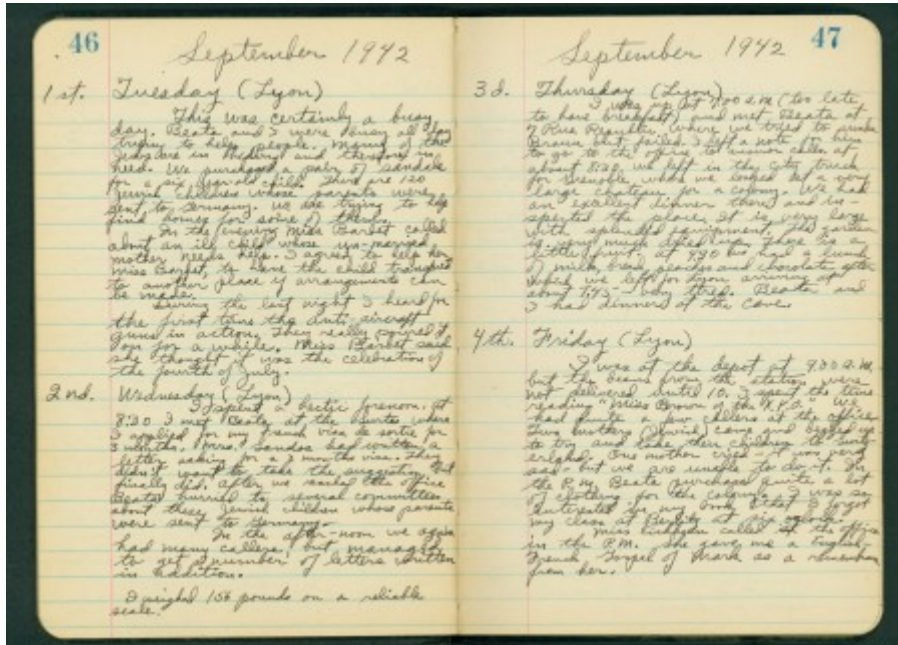 46
September 1942
1st. Tuesday (Lyon)
This was certainly a busy
day. Beata and I were busy all day
trying to help people. Many of the
Jews are in hiding and therefore in
need. We purchased a pair of sandals
for a six year old child. There are 120
Jewish children whose parents were
sent to Germany. We are trying to help
find homes for some of them.
In the evening Miss Barbet called
about an ill child whose un-married
mother needs help. I agreed to help her,
Miss Barbet, to have the child transferred
to another place if arrangements can
be made.
During the last night I heard for
the first time the anti-aircraft
guns in action. They really poured it
on for a while. Miss Barbet said
she thought it was the celebration of
the fourth of July.
2nd. Wednesday (Lyon)
I spent a hectic forenoon. At
8:30 I met Beata at the where
I applied for my French visa de sortie for
3 months. Mrs. Landos had written a
letter asking for a 3 months visa. They
didn't want to take the suggestion but
finally did. After we reached the office
Beata hurried to several committees
about these Jewish children whose parents
were sent to Germany.
In the after-noon we again
had many callers, but managed
to get a number of letters written
in addition.
I weighed 156 pounds on a reliable
scale.
47
September 1942
3d. Thursday (Lyon)
I was up at 7:00 a.m. (too late
to have breakfast) and met Beata at
7 Rue where we tried to
but failed. I left a note for him
to go to the office to answer calls. At
about 8:30 we left in the city truck
for Grenoble where we looked at a very
large chateau for a colony. We had
an excellent dinner there and in-
spected the place. It is very large
with splendid equipment. The garden
is very much dried up. There is a
little fruit. At 4:30 we had a lunch
of milk, bread, peaches and chocolate after
which we left for Lyon arriving at
about 7:45 - both tired. Beata and
I had dinner at the Cave.
4th. Friday (Lyon)
I was at the depot at 9:00 a.m.
but the beans from the station were
not delivered until 10. I spent the time
reading "Miss Brown of the X.Y.O." We
had quite a few callers at the office.
Two mothers (Jewish) came and begged us
to try and take their children to Switz-
erland. One mother cried - it was very
sad - but we are unable to do it. In
the P.M. Beata purchased quite a lot
of clothing for the colony. I was so
interested in my book that I forgot
my class at Berlitz at
Miss called at the office
in the P.M. She gave me a English-
French Gospel of Mark as a remembrance
from her.